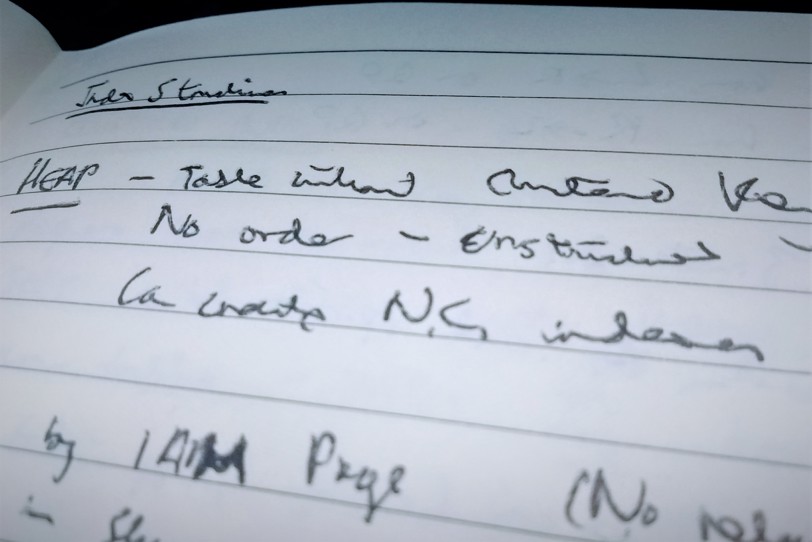 Index Structures
HEAP - Table without Clustered Key
No order - Unstructured -
Can create N.C. indexes
by IAM Page (No rela
in